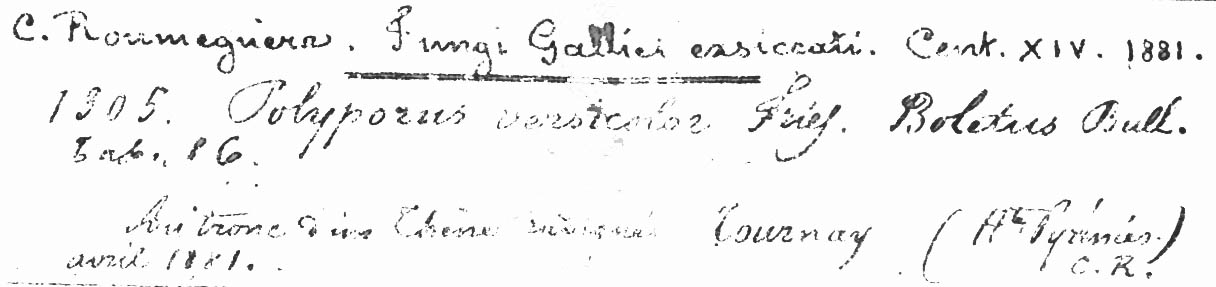 C. Roumeguere. Fungi Gallici exsiccati. Cent. XIV. 1881.
1305. Polyporus versicolor Fries. Boletus Bull.
Tab. 86.
Au tronc d'un Chêne Tournay (Htes Pyrénées)
avril 1881. C. R.